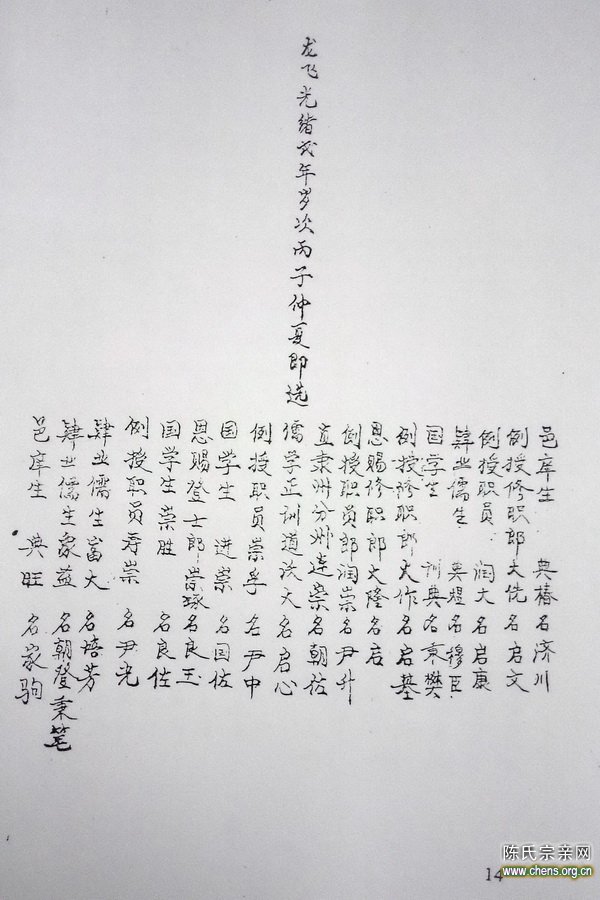 龙飞光绪弍年岁次丙子仲夏即选
邑庠生 典椿名济川
例授修职郎大侊名启文
例授职员 润大名启康
肄业儒生 典煜名穆臣
国学生 训典名秉樊
例授修职郎大作名启基
恩赐修职郎大隆名启
例授职员郎润崇名尹升
直隶州分州达崇名朝佐
儒学正训道法大名启心
例授职员崇孚 名尹中
国学生 进崇 名国佐
恩赐登士郎崇琢名良玉
国学生崇胜 名良佐
例授职员寿崇 名尹光
肄业儒生富大 名培芳
肄业儒生象益 名朝登秉笔
邑庠生 典旺 名家驹
14
陈氏宗亲网
www.chens.org.cn